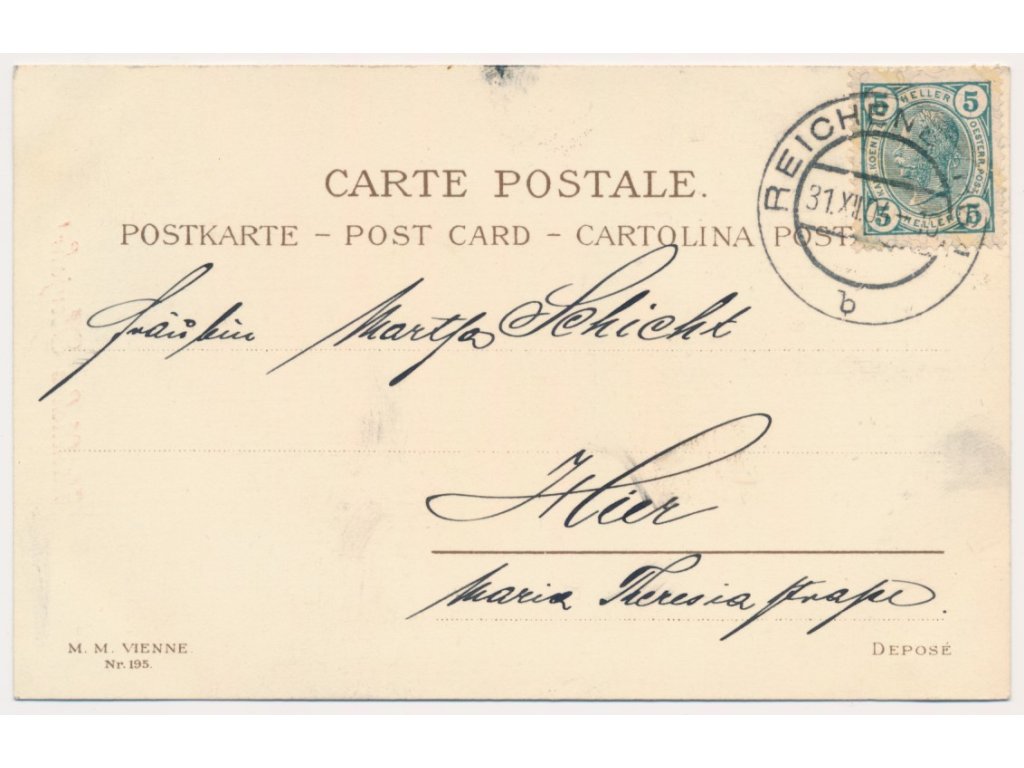 CARTE POSTALE.
POSTKARTE – POST CARD – CARTOLINA POST
5 HELLER 5
5 HELLER 5
REICHEN
31.XII.0
b
Fräulein Martha Schicht
Hier
Maria Theresia straße.
M. M. VIENNE.
Nr. 195.
DEPOSÉ